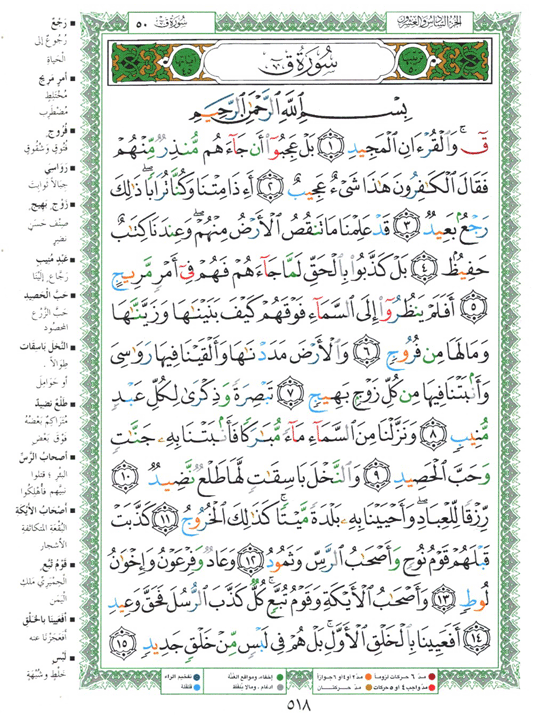 الجزء السادس والعشرون
سورة ق
٥٠
سُورَةُ قٓ
بِسْمِ ٱللَّهِ ٱلرَّحْمَٰنِ ٱلرَّحِيمِ
قٓ ۚ وَٱلْقُرْءَانِ ٱلْمَجِيدِ ١ بَلْ عَجِبُوٓا۟ أَن جَآءَهُم مُّنذِرٌ مِّنْهُمْ
فَقَالَ ٱلْكَٰفِرُونَ هَٰذَا شَىْءٌ عَجِيبٌ ٢ أَءِذَا مِتْنَا وَكُنَّا تُرَابًا ۖ ذَٰلِكَ
رَجْعٌۢ بَعِيدٌ ٣ قَدْ عَلِمْنَا مَا تَنقُصُ ٱلْأَرْضُ مِنْهُمْ ۖ وَعِندَنَا كِتَٰبٌ
حَفِيظٌۢ ٤ بَلْ كَذَّبُوا۟ بِٱلْحَقِّ لَمَّا جَآءَهُمْ فَهُمْ فِىٓ أَمْرٍ مَّرِيجٍ
٥ أَفَلَمْ يَنظُرُوٓا۟ إِلَى ٱلسَّمَآءِ فَوْقَهُمْ كَيْفَ بَنَيْنَٰهَا وَزَيَّنَّٰهَا
وَمَا لَهَا مِن فُرُوجٍ ٦ وَٱلْأَرْضَ مَدَدْنَٰهَا وَأَلْقَيْنَا فِيهَا رَوَٰسِىَ
وَأَنۢبَتْنَا فِيهَا مِن كُلِّ زَوْجٍۭ بَهِيجٍ ٧ تَبْصِرَةً وَذِكْرَىٰ لِكُلِّ عَبْدٍ
مُّنِيبٍ ٨ وَنَزَّلْنَا مِنَ ٱلسَّمَآءِ مَآءً مُّبَٰرَكًا فَأَنۢبَتْنَا بِهِۦ جَنَّٰتٍ
وَحَبَّ ٱلْحَصِيدِ ٩ وَٱلنَّخْلَ بَاسِقَٰتٍ لَّهَا طَلْعٌ نَّضِيدٌ ١٠
رِّزْقًا لِّلْعِبَادِ ۖ وَأَحْيَيْنَا بِهِۦ بَلْدَةً مَّيْتًا ۚ كَذَٰلِكَ ٱلْخُرُوجُ ١١ كَذَّبَتْ
قَبْلَهُمْ قَوْمُ نُوحٍ وَأَصْحَٰبُ ٱلرَّسِّ وَثَمُودُ ١٢ وَعَادٌ وَفِرْعَوْنُ وَإِخْوَٰنُ
لُوطٍ ١٣ وَأَصْحَٰبُ ٱلْأَيْكَةِ وَقَوْمُ تُبَّعٍ ۚ كُلٌّ كَذَّبَ ٱلرُّسُلَ فَحَقَّ وَعِيدِ
١٤ أَفَعَيِينَا بِٱلْخَلْقِ ٱلْأَوَّلِ ۚ بَلْ هُمْ فِى لَبْسٍ مِّنْ خَلْقٍ جَدِيدٍ ١٥
رَجْعٌ
رُجُوعٌ إلى
الحَيَاةِ
أمرٍ مَريجٍ
مُخْتَلِطٍ
مُضْطَرِبٍ
فُرُوجٍ
فُتُوقٍ وَشُقُوقٍ
رَوَاسِيَ
جِبَالاً ثوابتَ
زَوْجٍ بَهيجٍ
صِنْفٍ حَسَنٍ
نَضِرٍ
عَبْدٍ مُنيبٍ
رَجَّاعٍ إلَيْنَا
حَبَّ الحَصيدِ
حَبَّ الزَّرْعِ
المَحْصُودِ
النَّخْلَ بَاسِقاتٍ
طِوَالاً
أو حَوَامِلَ
طَلْعٌ نَضيدٌ
مُتَرَاكِمٌ بَعْضُهُ
فَوْقَ بَعْضٍ
أصحابُ الرَّسِّ
البِئْرِ ؛ قَتَلُوا
نَبِيَّهُمْ فأُهْلِكُوا
أصْحَابُ الأيْكَةِ
البُقْعَةِ المُتَكَاثِفَةِ
الأشجارِ
قَوْمُ تُبَّعٍ
الحِمْيَرِيِّ مَلِكِ
اليَمَنِ
أفَعَيِينَا بِالخَلْقِ
أفَعَجَزْنَا عنه
لَبْسٍ
خَلْطٍ وَشُبْهَةٍ
مدّ ٦ حركات لزوماً
مدّ ٢ أو ٤ أو ٦ جوازاً
إخفاء، ومواقع الغُنَّة
تفخيم الراء
مدّ واجب ٤ أو ٥ حركات
مدّ حركتان
ادغام، وما لا يُلفظ
قلقلة
٥١٨